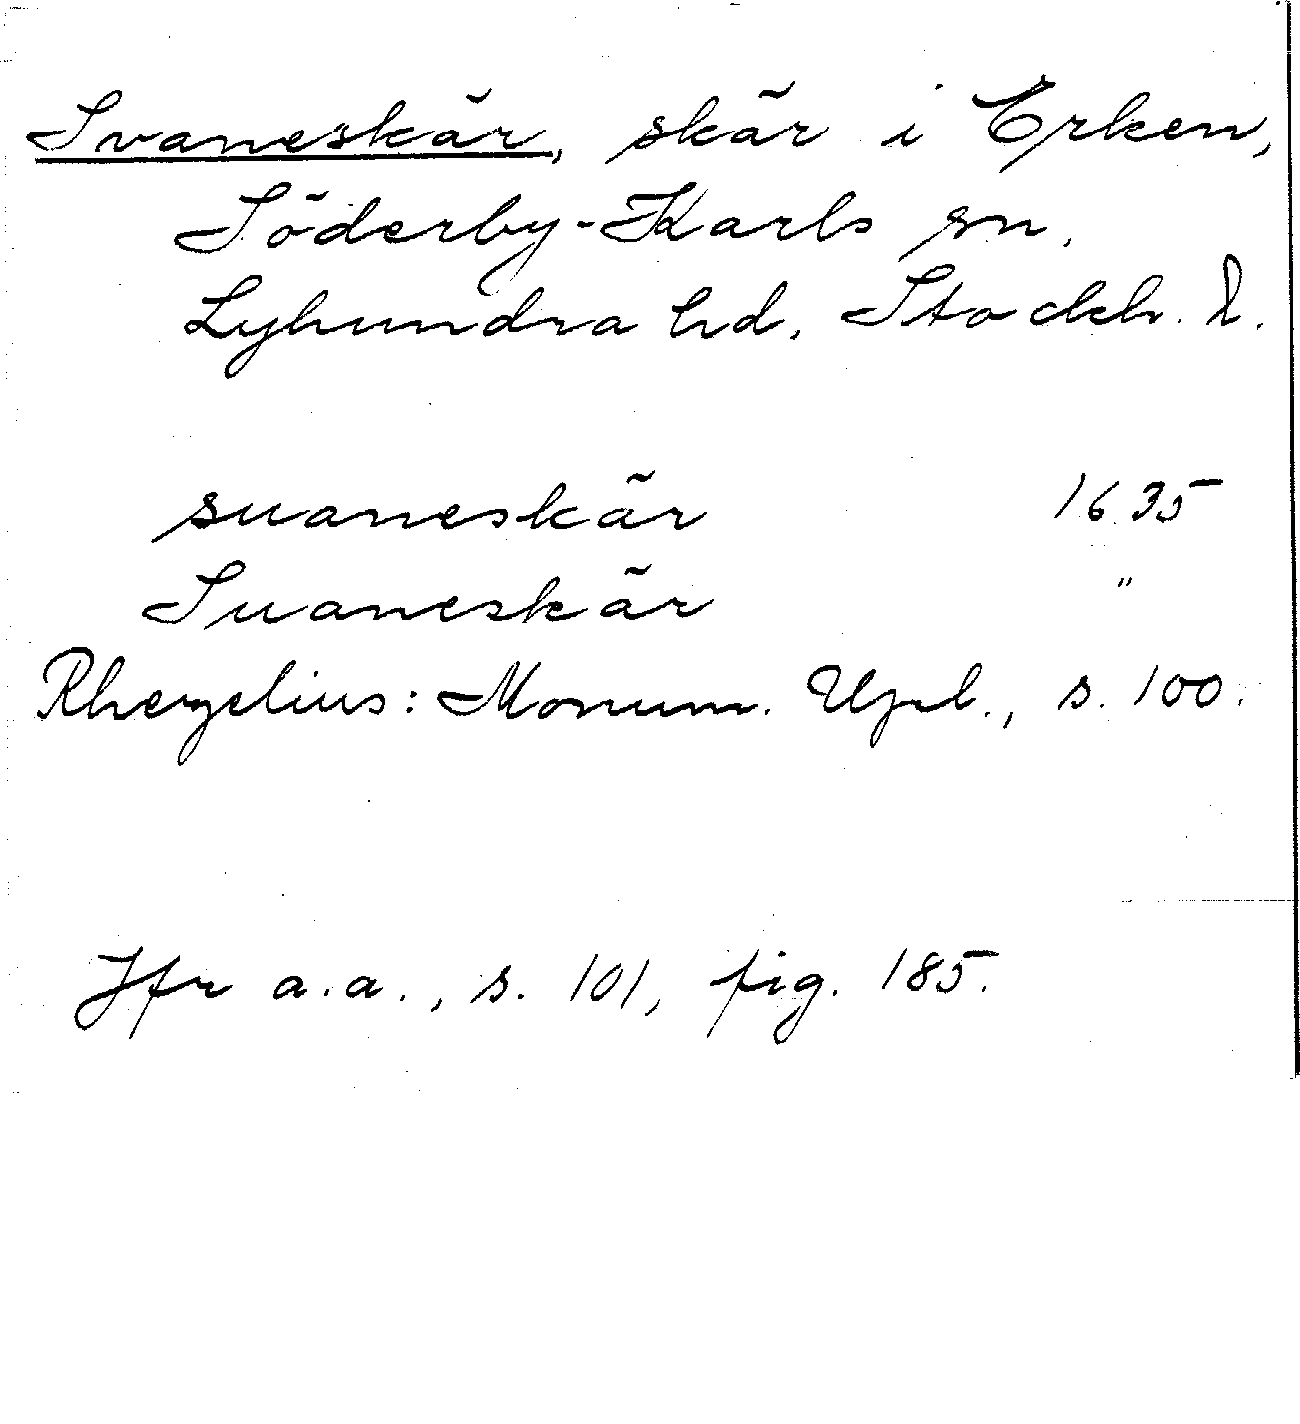 Svaneskär, skär i Erken,
Söderby-Karls sn,
Lyhundra hd, Stockh. l.
suaneskär 1635
Suaneskär "
Rhezelius: Monum. Upl., s. 100.
Jfr a.a., s. 101, fig. 185.